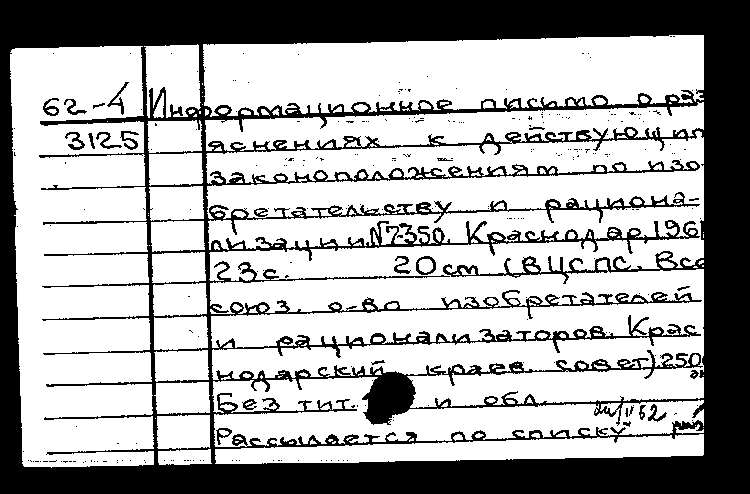 62-4 Информационное письмо о раз
3125 яснениях к действующим
законоположениям по изо-
бретательству и рациона-
лизации №7350. Краснодар, 1961
23с. 20см (ВЦСПС. Все
союз. о-во изобретателей
и рационализаторов. Крас-
нодарский краев. совет) 250
Без тит. и обл.
Рассылается по списку